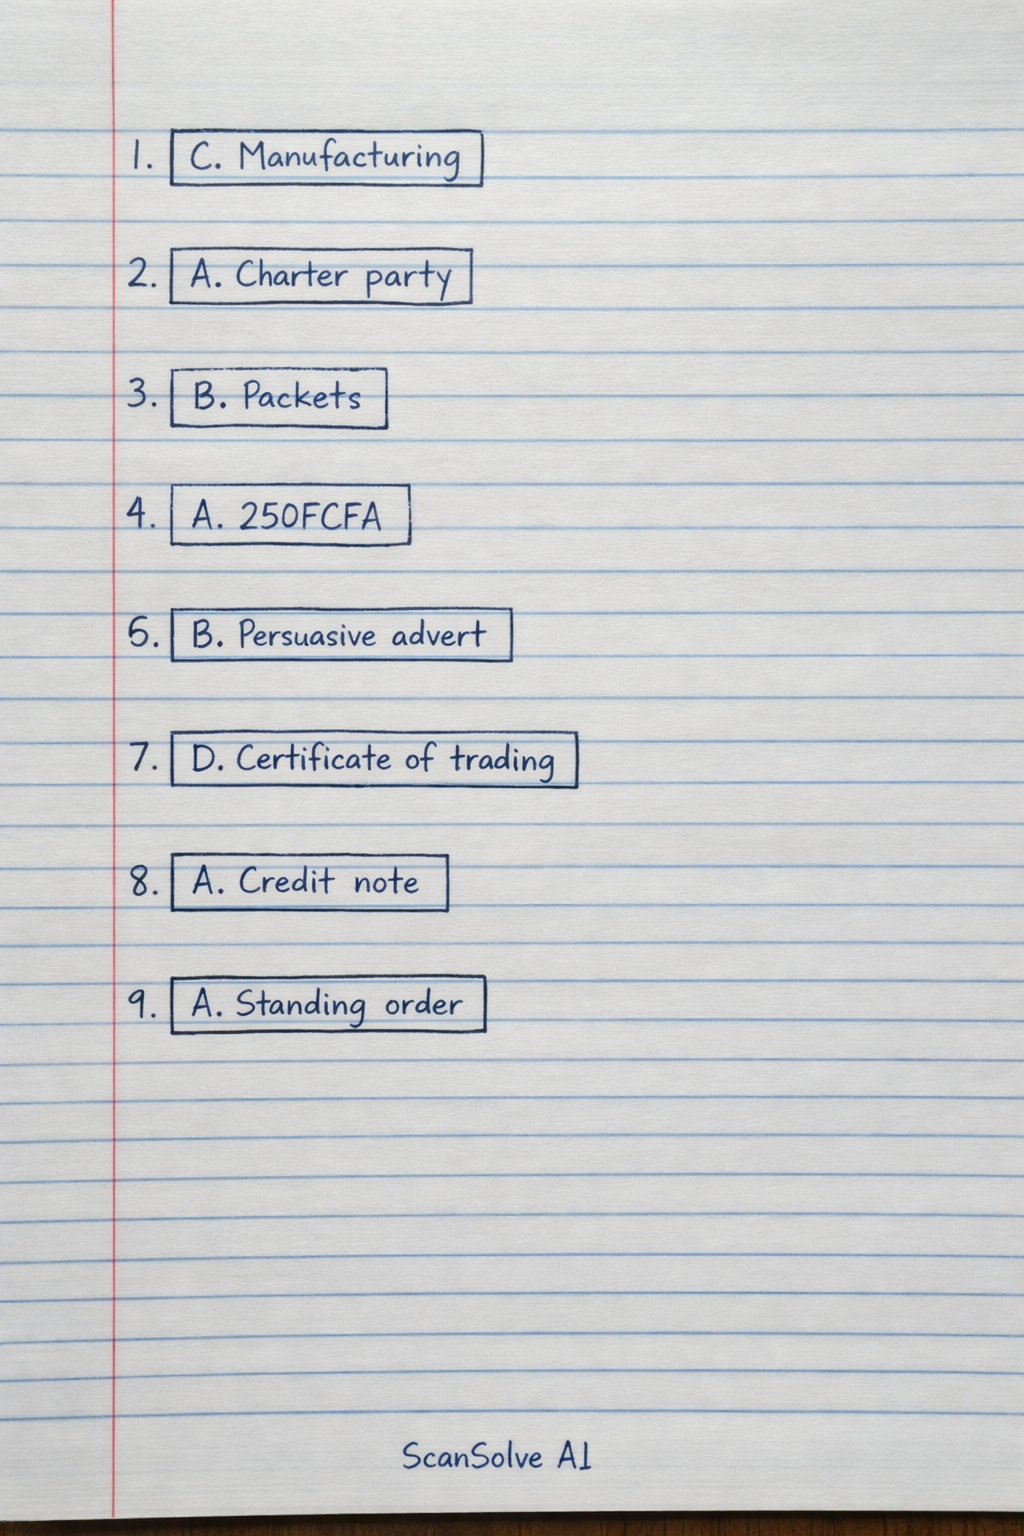 1. C. Manufacturing
2. A. Charter party
3. B. Packets
4. A. 250FCFA
5. B. Persuasive advert
7. D. Certificate of trading
8. A. Credit note
9. A. Standing order
ScanSolve AI